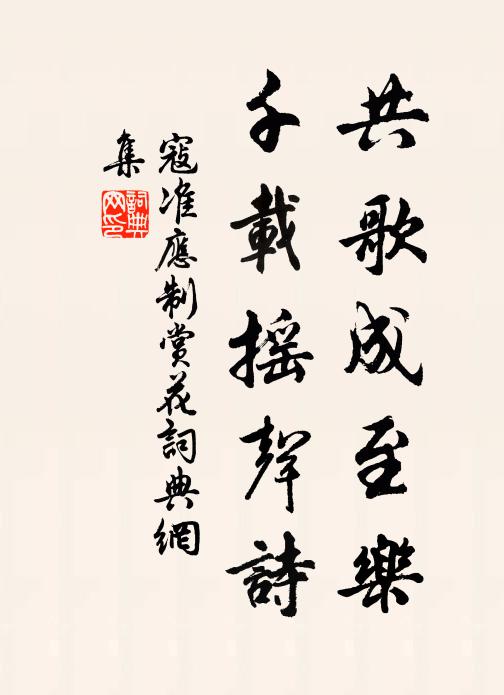 共歌成至樂
千載揺聲詩
寇准應制賞花詞典網
集
詞典
网印